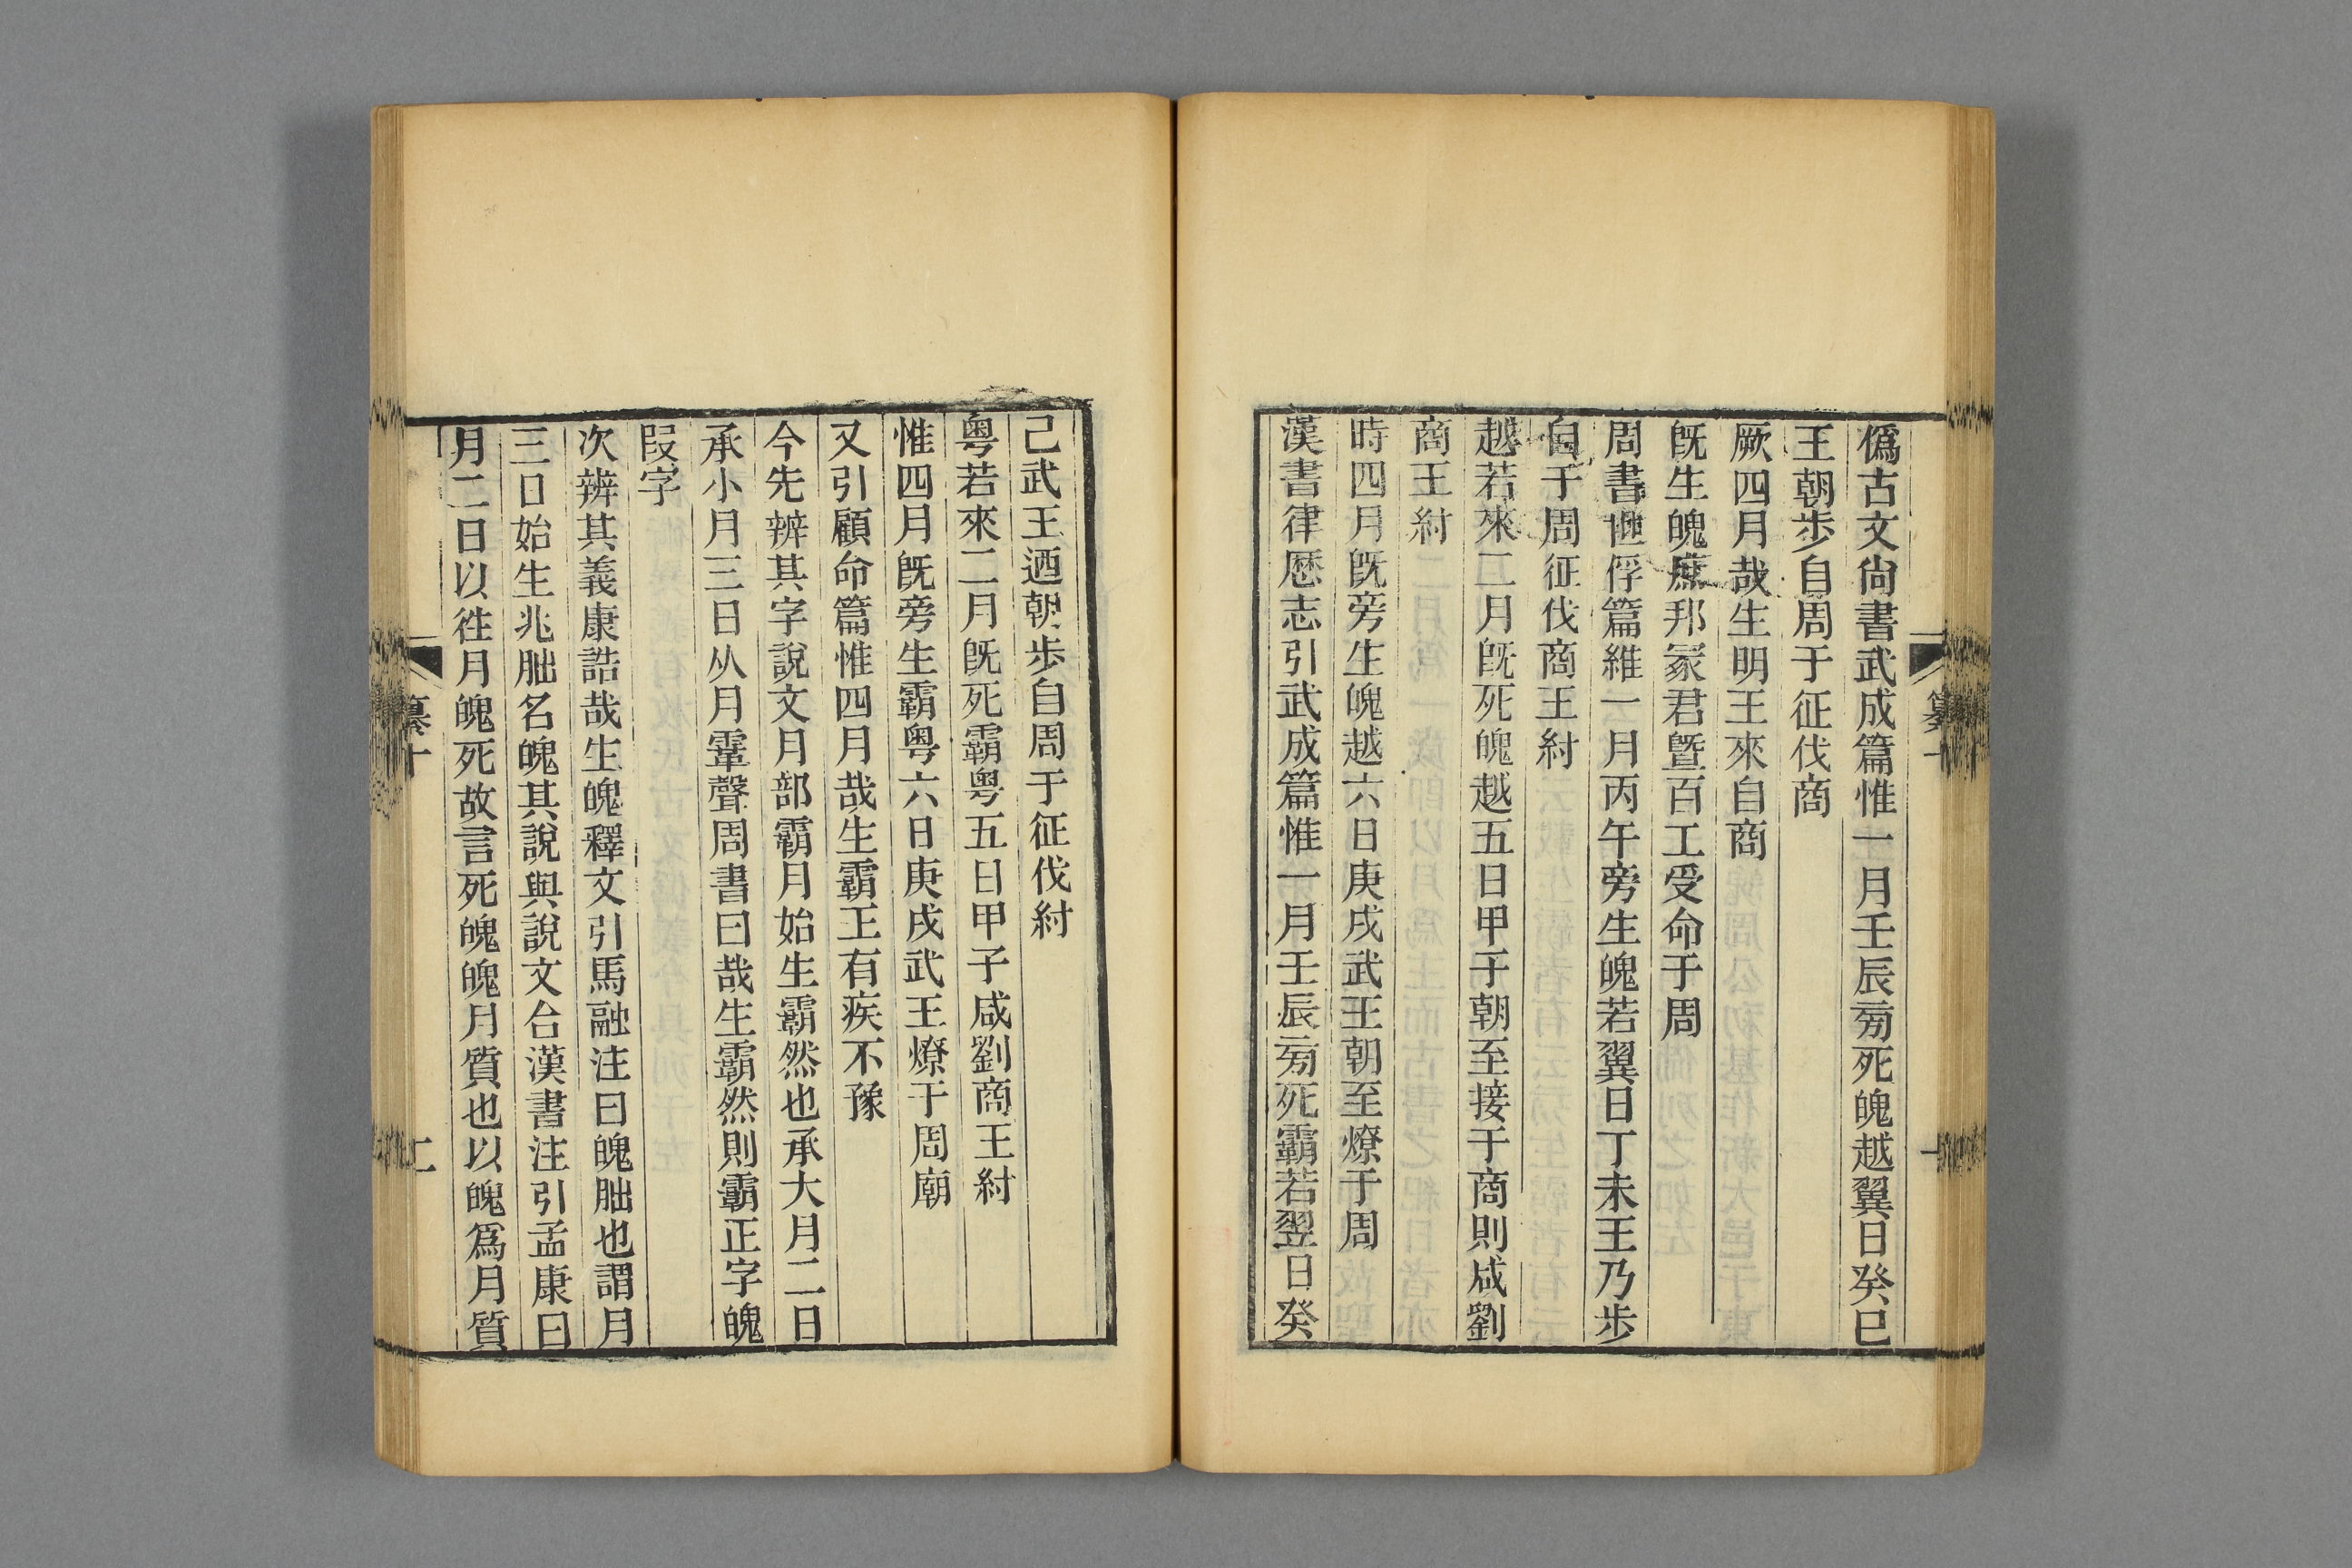 僞古文尙書武成篇惟一月壬辰旁死魄越翼日癸巳
王朝步自周于征伐商
厥四月哉生明王來自商
旣生魄庶邦冢君曁百工受命于周
周書世俘篇維一月丙午旁生魄若翼日丁未王乃步
自于周征伐商王紂
越若來二月旣死魄越五日甲子朝至接于商則咸劉
商王紂
時四月旣旁生魄越六日庚戌武王朝至燎于周
漢書律歷志引武成篇惟一月壬辰旁死霸若翌日癸
己武王迺朝步自周于征伐紂
粤若來二月旣死霸粤五日甲子咸劉商王紂
惟四月旣旁生霸粤六日庚戌武王燎于周廟
又引顧命篇惟四月哉生霸王有疾不豫
今先辨其字說文月部霸月始生霸然也承大月二日
承小月三日从月䨣聲周書曰哉生霸然則霸正字魄
叚字
次辨其義康誥哉生魄釋文引馬融注曰魄朏也謂月
三日始生兆朏名魄其說與說文合漢書注引孟康曰
月二日以往月魄死故言死魄魄月質也以魄爲月質
纂十
二